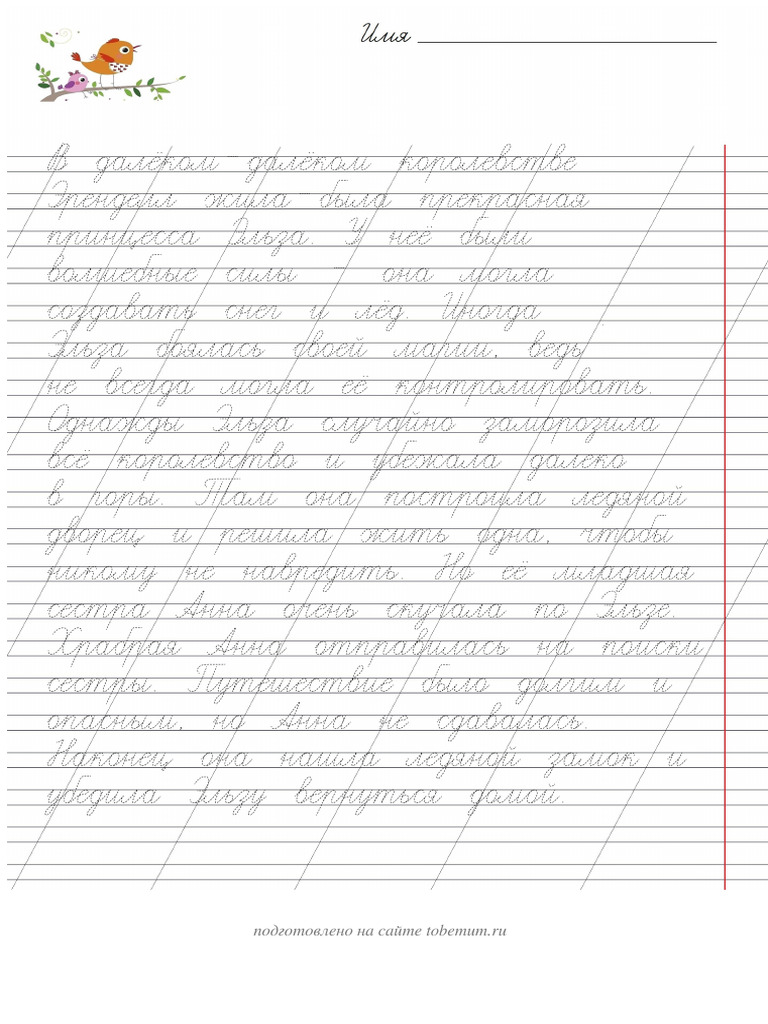 Имя
В далёком-далёком королевстве
Эренделл жила-была прекрасная
принцесса Эльза. У неё были
волшебные силы - она могла
создавать снег и лёд. Иногда
Эльза боялась своей магии, ведь
не всегда могла её контролировать.
Однажды Эльза случайно заморозила
всё королевство и убежала далеко
в горы. Там она построила ледяной
дворец и решила жить одна, чтобы
никому не навредить. Но её младшая
сестра Анна очень скучала по Эльзе.
Храбрая Анна отправилась на поиски
сестры. Путешествие было долгим и
опасным, но Анна не сдавалась.
Наконец она нашла ледяной замок и
убедила Эльзу вернуться домой.
подготовлено на сайте tobemum.ru